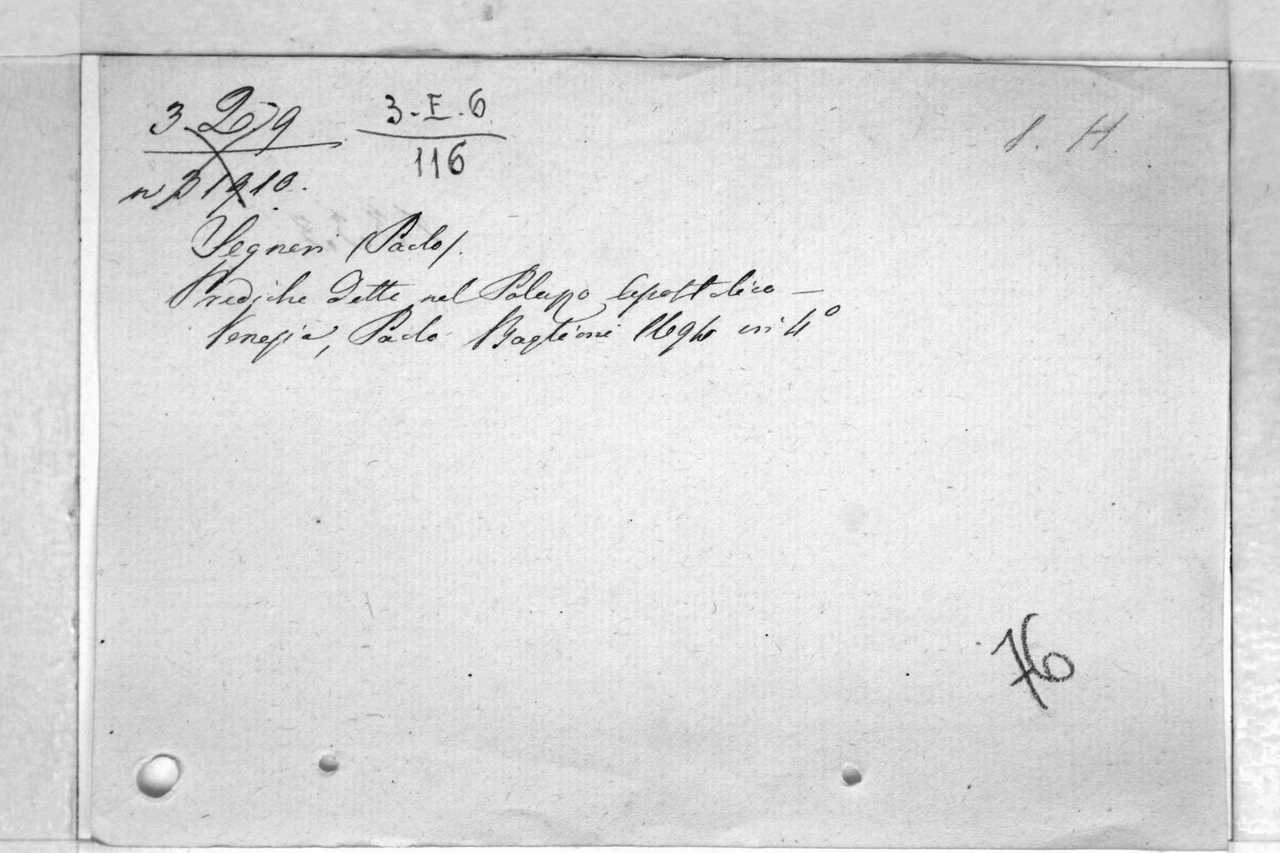 3-2-9 3-E.6
n 31910. 116
S. H.
Segneri (Paolo).
Prediche dette nel Palazzo Apostolico —
Venezia, Paolo Baglioni 1694 in 4°
76